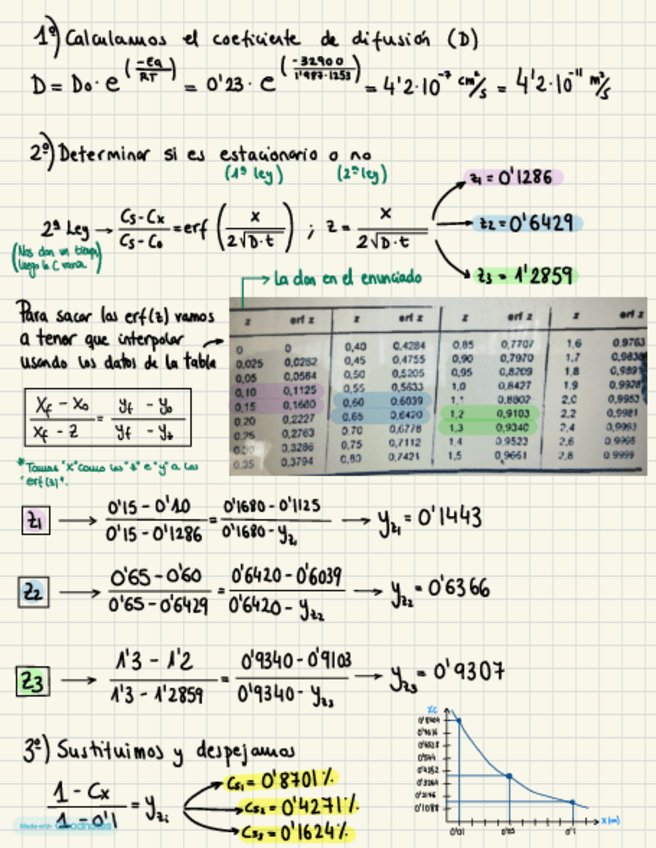 1º) Calculamos el coeficiente de difusión (D)
D = D₀ · e^(-Ea/RT) = 0'23 · e^(-32900/1'987·1253) = 4'2·10⁻⁷ cm²/s = 4'2·10⁻¹¹ m²/s
2º) Determinar si es estacionario o no
(1ª ley) (2ª ley)
z₁ = 0'1286
2ª Ley → (Cs - Cx)/(Cs - C₀) = erf (x/(2√D·t)) ; z = x/(2√D·t)
z2 = 0'6429
(Nos dan un tiempo luego la C varía)
z3 = 1'2859
→ la dan en el enunciado
Para sacar las erf(z) vamos
a tener que interpolar
usando los datos de la tabla
z erf z z erf z z erf z z erf z
0 0 0,40 0,4284 0,85 0,7707 1,6 0,9763
0,025 0,0282 0,45 0,4755 0,90 0,7970 1,7 0,9838
0,05 0,0564 0,50 0,5205 0,95 0,8209 1,8 0,9891
0,10 0,1125 0,55 0,5633 1,0 0,8427 1,9 0,9928
0,15 0,1680 0,60 0,6039 1,1 0,8802 2,0 0,9953
0,20 0,2227 0,65 0,6420 1,2 0,9103 2,2 0,9981
0,25 0,2763 0,70 0,6778 1,3 0,9340 2,4 0,9993
0,30 0,3286 0,75 0,7112 1,4 0,9523 2,6 0,9998
0,35 0,3794 0,80 0,7421 1,5 0,9661 2,8 0,9999
(Xf - X₀)/(Xf - Z) = (yf - y₀)/(yf - yz)
"x" como las "z" e "y" a las
"erf(z)".
z₁ → (0'15 - 0'10)/(0'15 - 0'1286) = (0'1680 - 0'1125)/(0'1680 - yz₁) → yz₁ = 0'1443
z2 → (0'65 - 0'60)/(0'65 - 0'6429) = (0'6420 - 0'6039)/(0'6420 - yz2) → yz2 = 0'6366
z3 → (1'3 - 1'2)/(1'3 - 1'2859) = (0'9340 - 0'9103)/(0'9340 - yz3) → yz3 = 0'9307
3º) Sustituimos y despejamos
(1 - Cx)/(1 - 0'1) = yzi
Cs1 = 0'8701%
Cs2 = 0'4271%
Cs3 = 0'1624%
%C
0'1088
x (m)
0'01 0'05 0'1
Made with